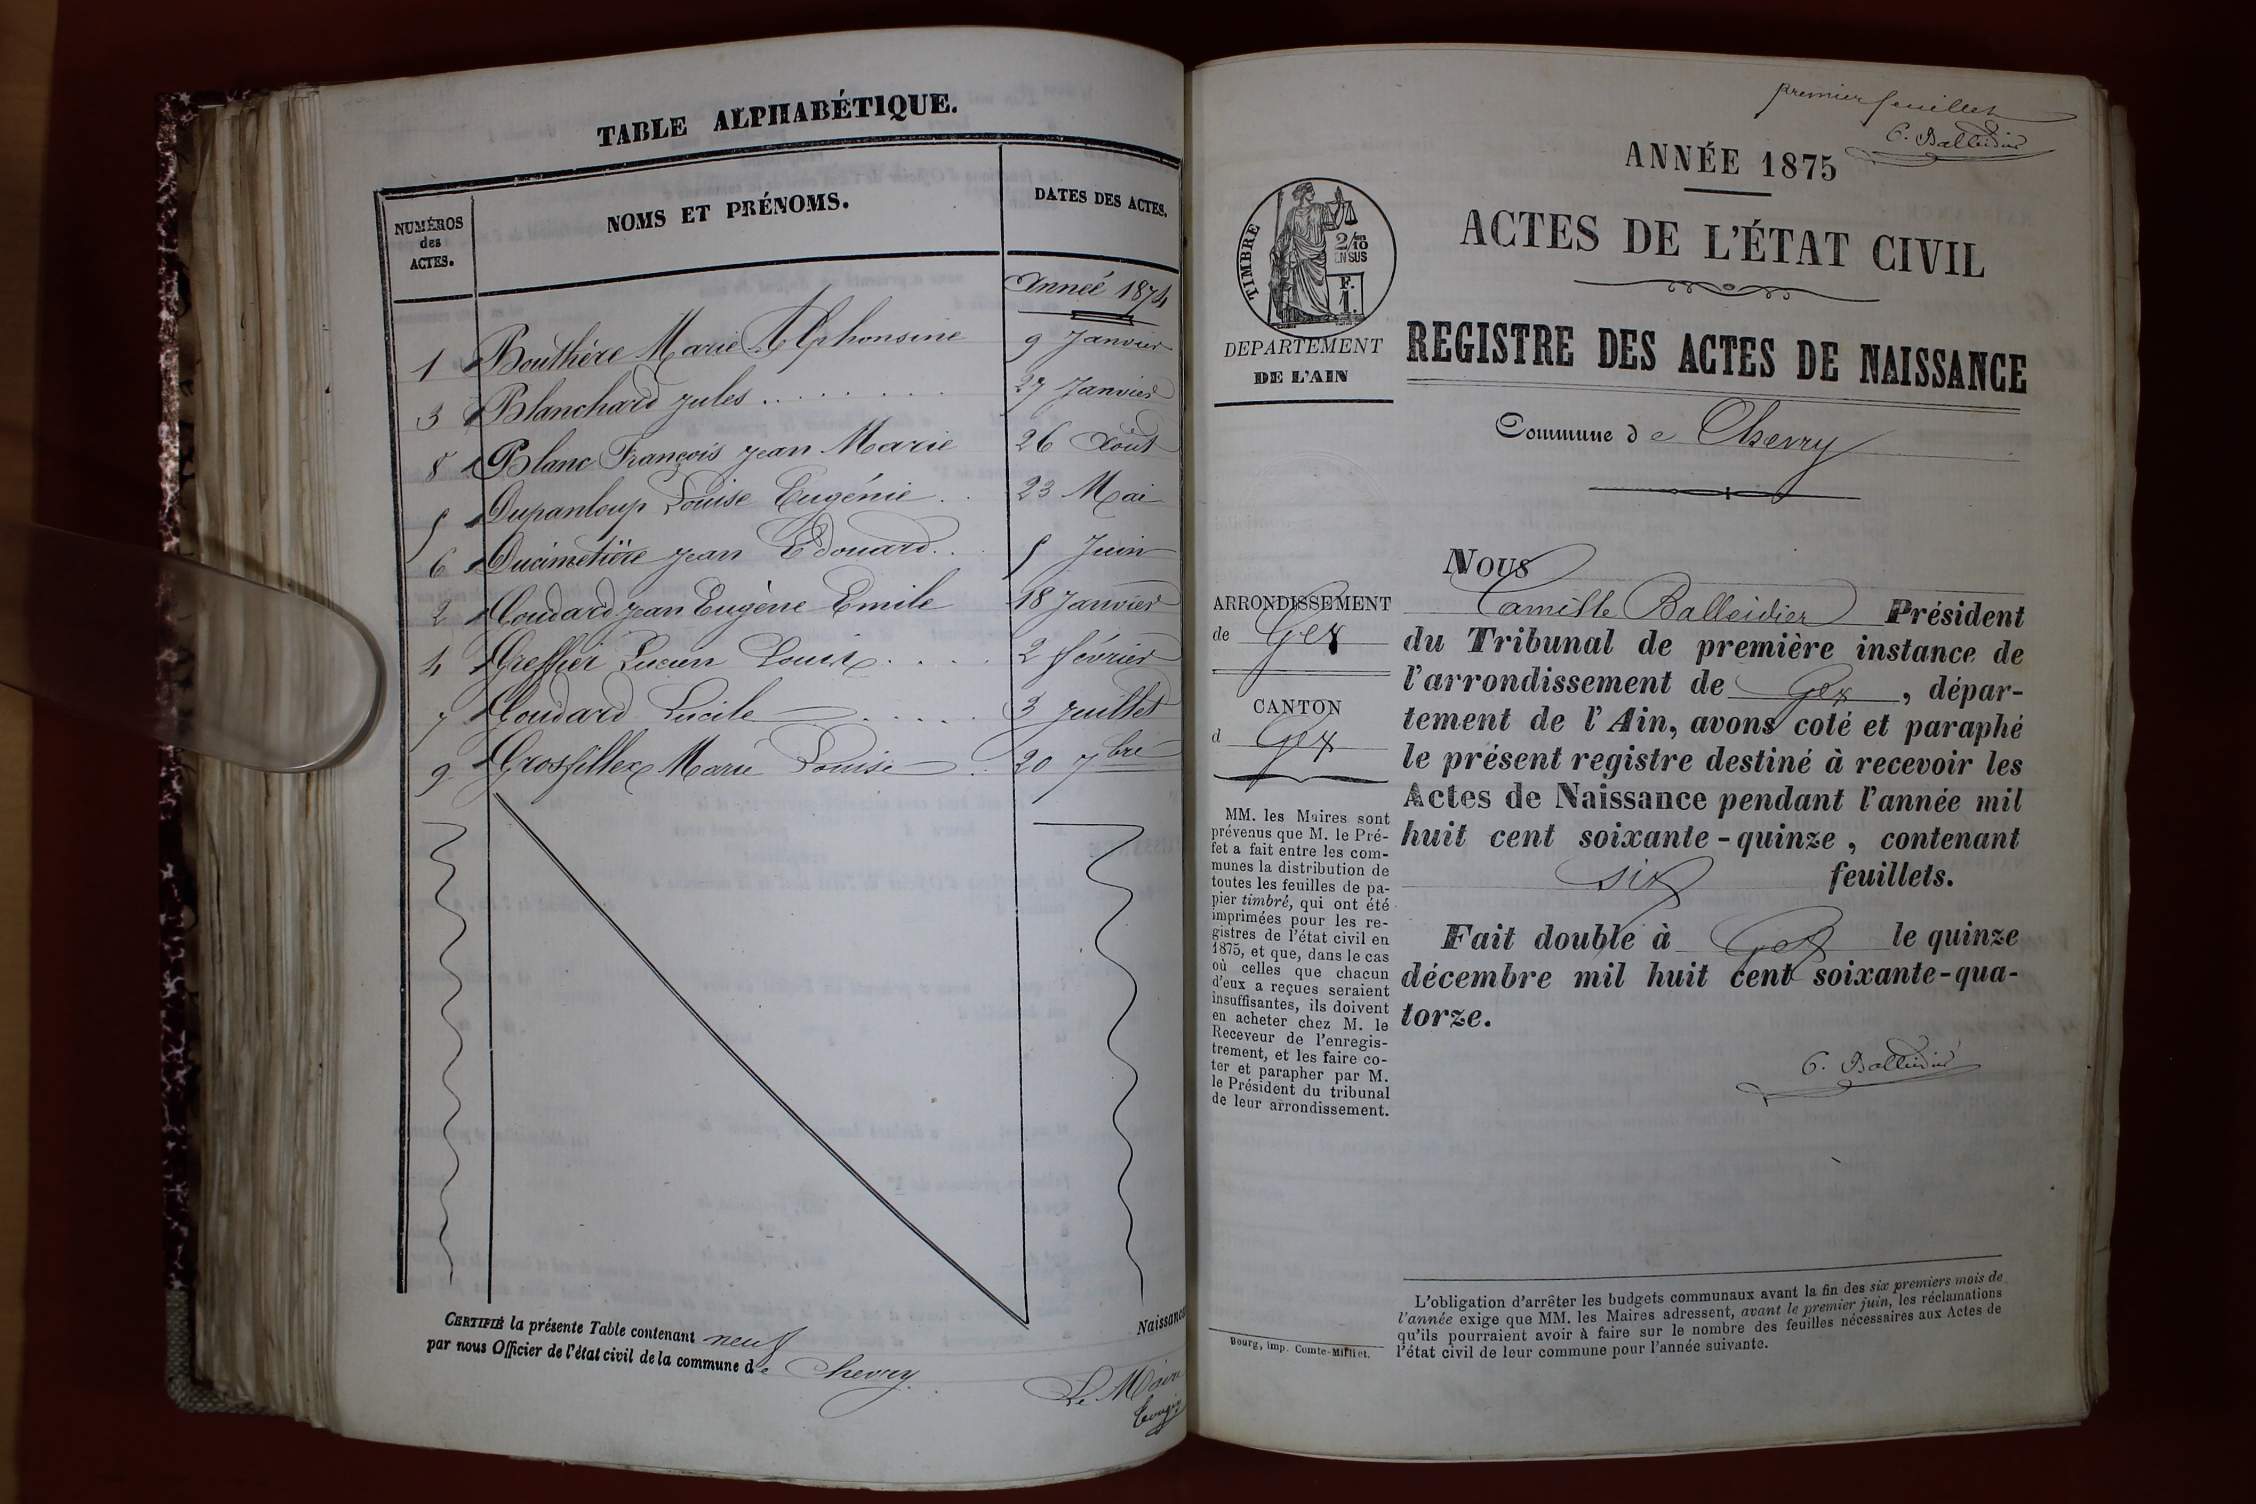 TABLE ALPHABÉTIQUE.
NUMÉROS
des
ACTES.
NOMS ET PRÉNOMS.
DATES DES ACTES.
Année 1874
1 Bouthère Marie Alphonsine 9 Janvier
3 Blanchard Jules . . . . . . . . 27 Janvier
8 Blanc François Jean Marie 26 Août
5 Dupanloup Louise Eugénie . . 23 Mai
6 Ducimetière Jean Edouard . . 5 Juin
2 Goudard Jean Eugène Emile 18 Janvier
4 Greffier Lucien Louis . . . . 2 février
7 Goudard Lucile . . . . . . 3 Juillet
9 Grosfillex Marie Louise . . 20 7bre
CERTIFIÉ la présente Table contenant neuf Naissances
par nous Officier de l'état civil de la commune de Chevry
Le Maire
premier feuillet
C. Balleidier
ANNÉE 1875
ACTES DE L'ÉTAT CIVIL
REGISTRE DES ACTES DE NAISSANCE
Commune de Chevry
TIMBRE
2/10
EN SUS
1 F.
DEPARTEMENT
DE L'AIN
ARRONDISSEMENT
de Gex
CANTON
d Gex
MM. les Maires sont
prévenus que M. le Pré-
fet a fait entre les com-
munes la distribution de
toutes les feuilles de pa-
pier timbré, qui ont été
imprimées pour les re-
gistres de l'état civil en
1875, et que, dans le cas
où celles que chacun
d'eux a reçues seraient
insuffisantes, ils doivent
en acheter chez M. le
Receveur de l'enregis-
trement, et les faire co-
ter et parapher par M.
le Président du tribunal
de leur arrondissement.
NOUS
Camille Balleidier Président
du Tribunal de première instance de
l'arrondissement de Gex, dépar-
tement de l'Ain, avons coté et paraphé
le présent registre destiné à recevoir les
Actes de Naissance pendant l'année mil
huit cent soixante-quinze, contenant
six feuillets.
Fait double à Gex le quinze
décembre mil huit cent soixante-qua-
torze.
C. Balleidier
L'obligation d'arrêter les budgets communaux avant la fin des six premiers mois de
l'année exige que MM. les Maires adressent, avant le premier juin, les réclamations
qu'ils pourraient avoir à faire sur le nombre des feuilles nécessaires aux Actes de
l'état civil de leur commune pour l'année suivante.
Bourg, imp. Comte-Milliet.